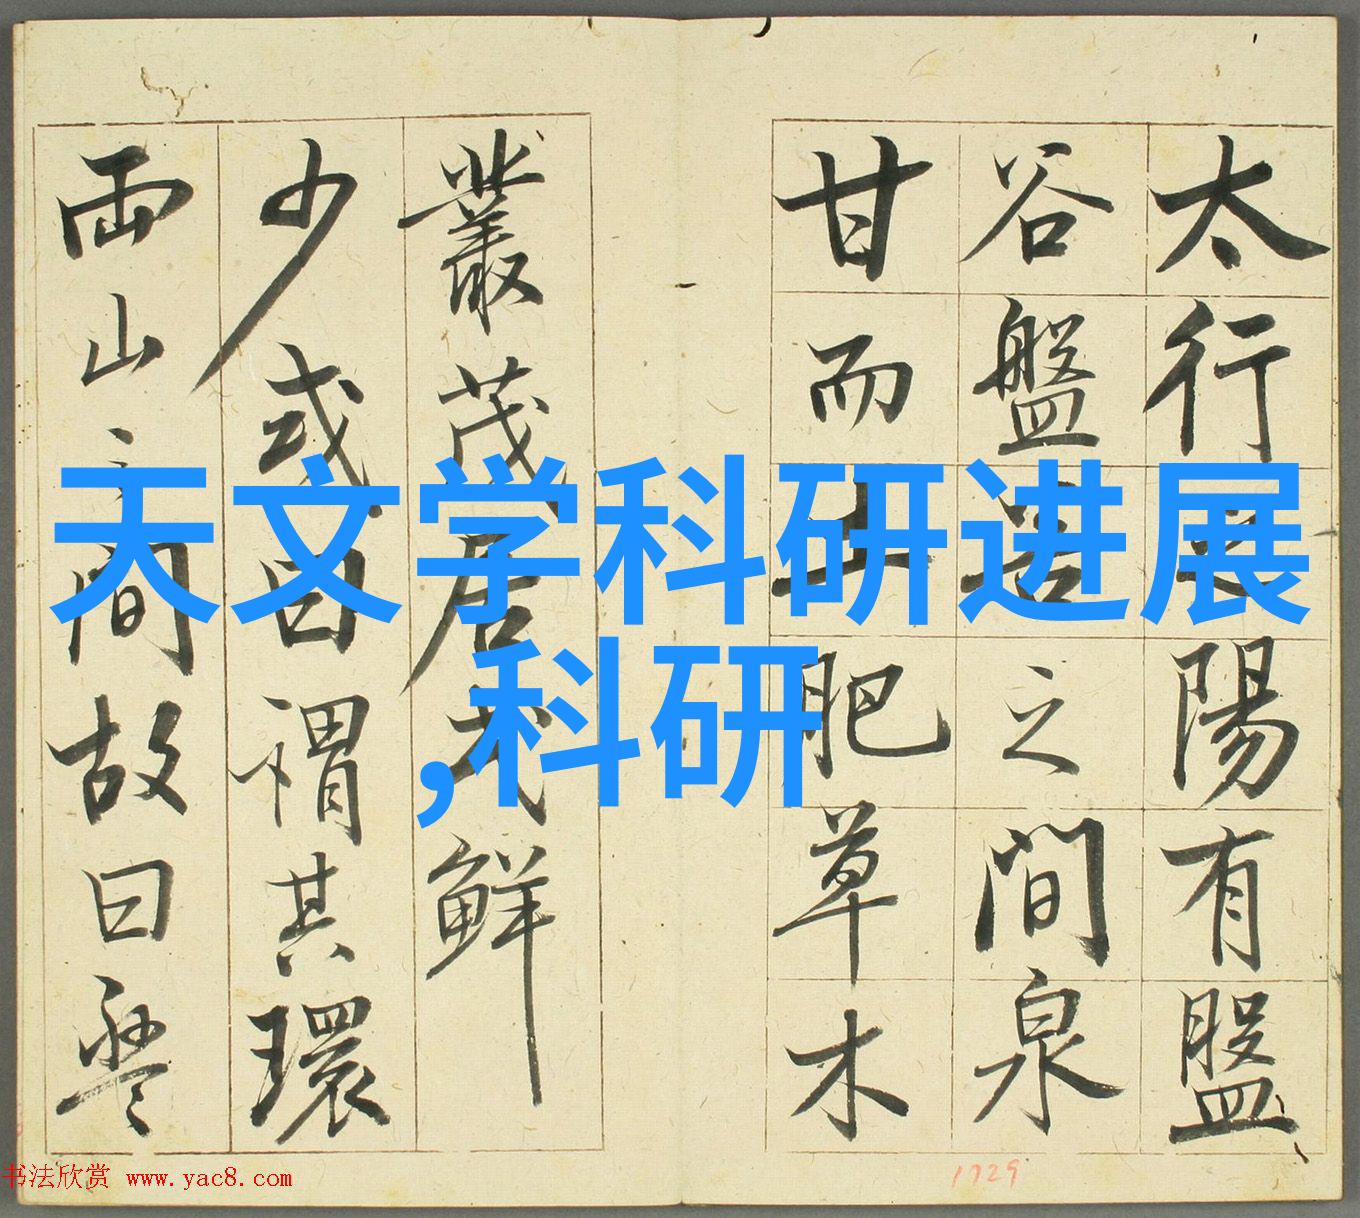 太行之陽有盤
谷盤谷之間泉
甘而土肥草木
叢茂居民鮮
少或曰謂其環
兩山之間故曰盤
天文学科研进展
,科研
书法欣赏 www.yac8.com
1729